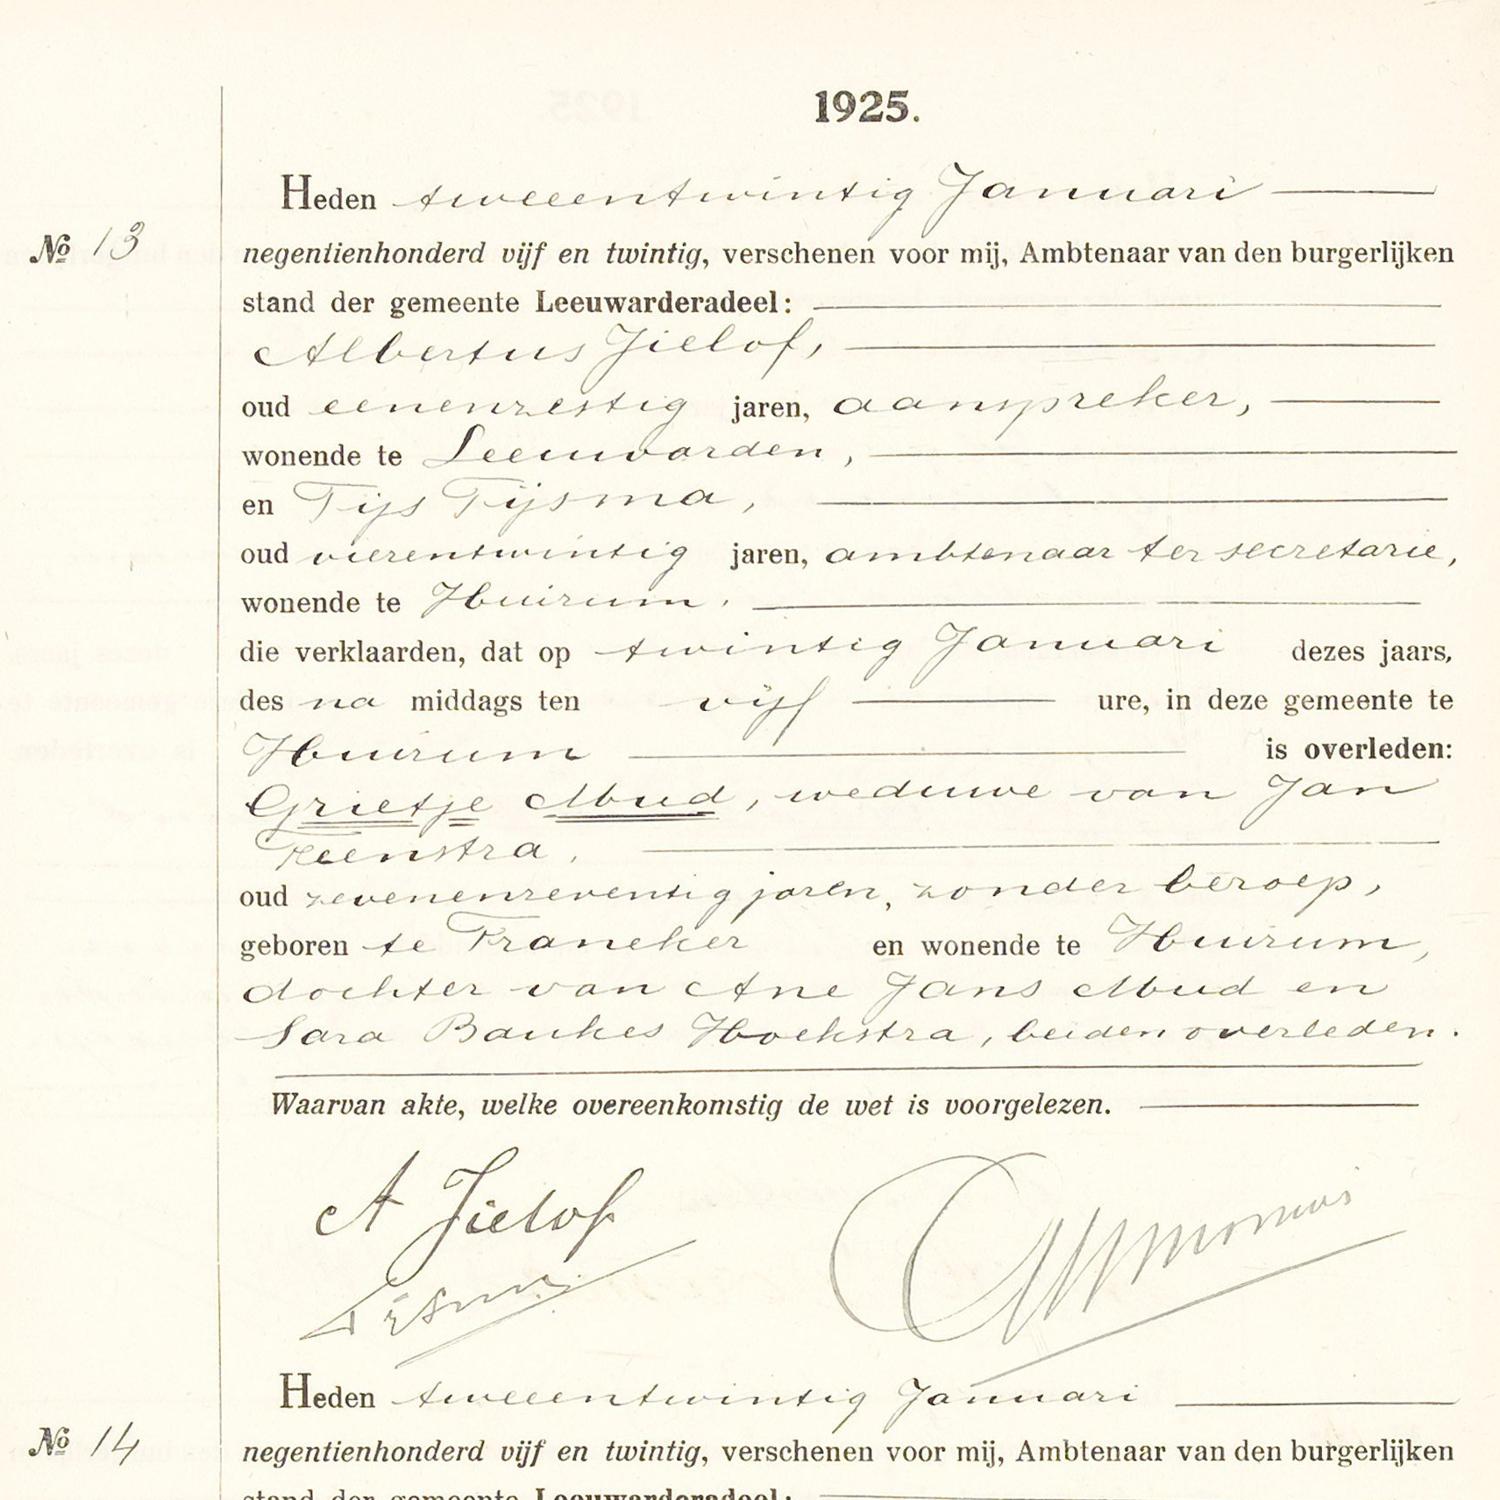 1925.
Heden tweeentwintig Januari
No 13
negentienhonderd vijf en twintig, verschenen voor mij, Ambtenaar van den burgerlijken
stand der gemeente Leeuwarderadeel:
Albertus Jielof,
oud eenenzestig jaren, aanspreker,
wonende te Leeuwarden,
en Tijs Tijsma,
oud vierentwintig jaren, ambtenaar ter secretarie,
wonende te Huizum.
die verklaarden, dat op twintig Januari dezes jaars,
des na middags ten vijf ure, in deze gemeente te
Huizum is overleden:
Grietje Mud, weduwe van Jan
Feenstra,
oud zevenenzeventig jaren, zonder beroep,
geboren te Franeker en wonende te Huizum,
dochter van Ane Jans Mud en
Sara Baukes Hoekstra, beiden overleden.
Waarvan akte, welke overeenkomstig de wet is voorgelezen.
A Jielof
Heden tweeentwintig Januari
No 14
negentienhonderd vijf en twintig, verschenen voor mij, Ambtenaar van den burgerlijken
stand der gemeente Leeuwarderadeel: